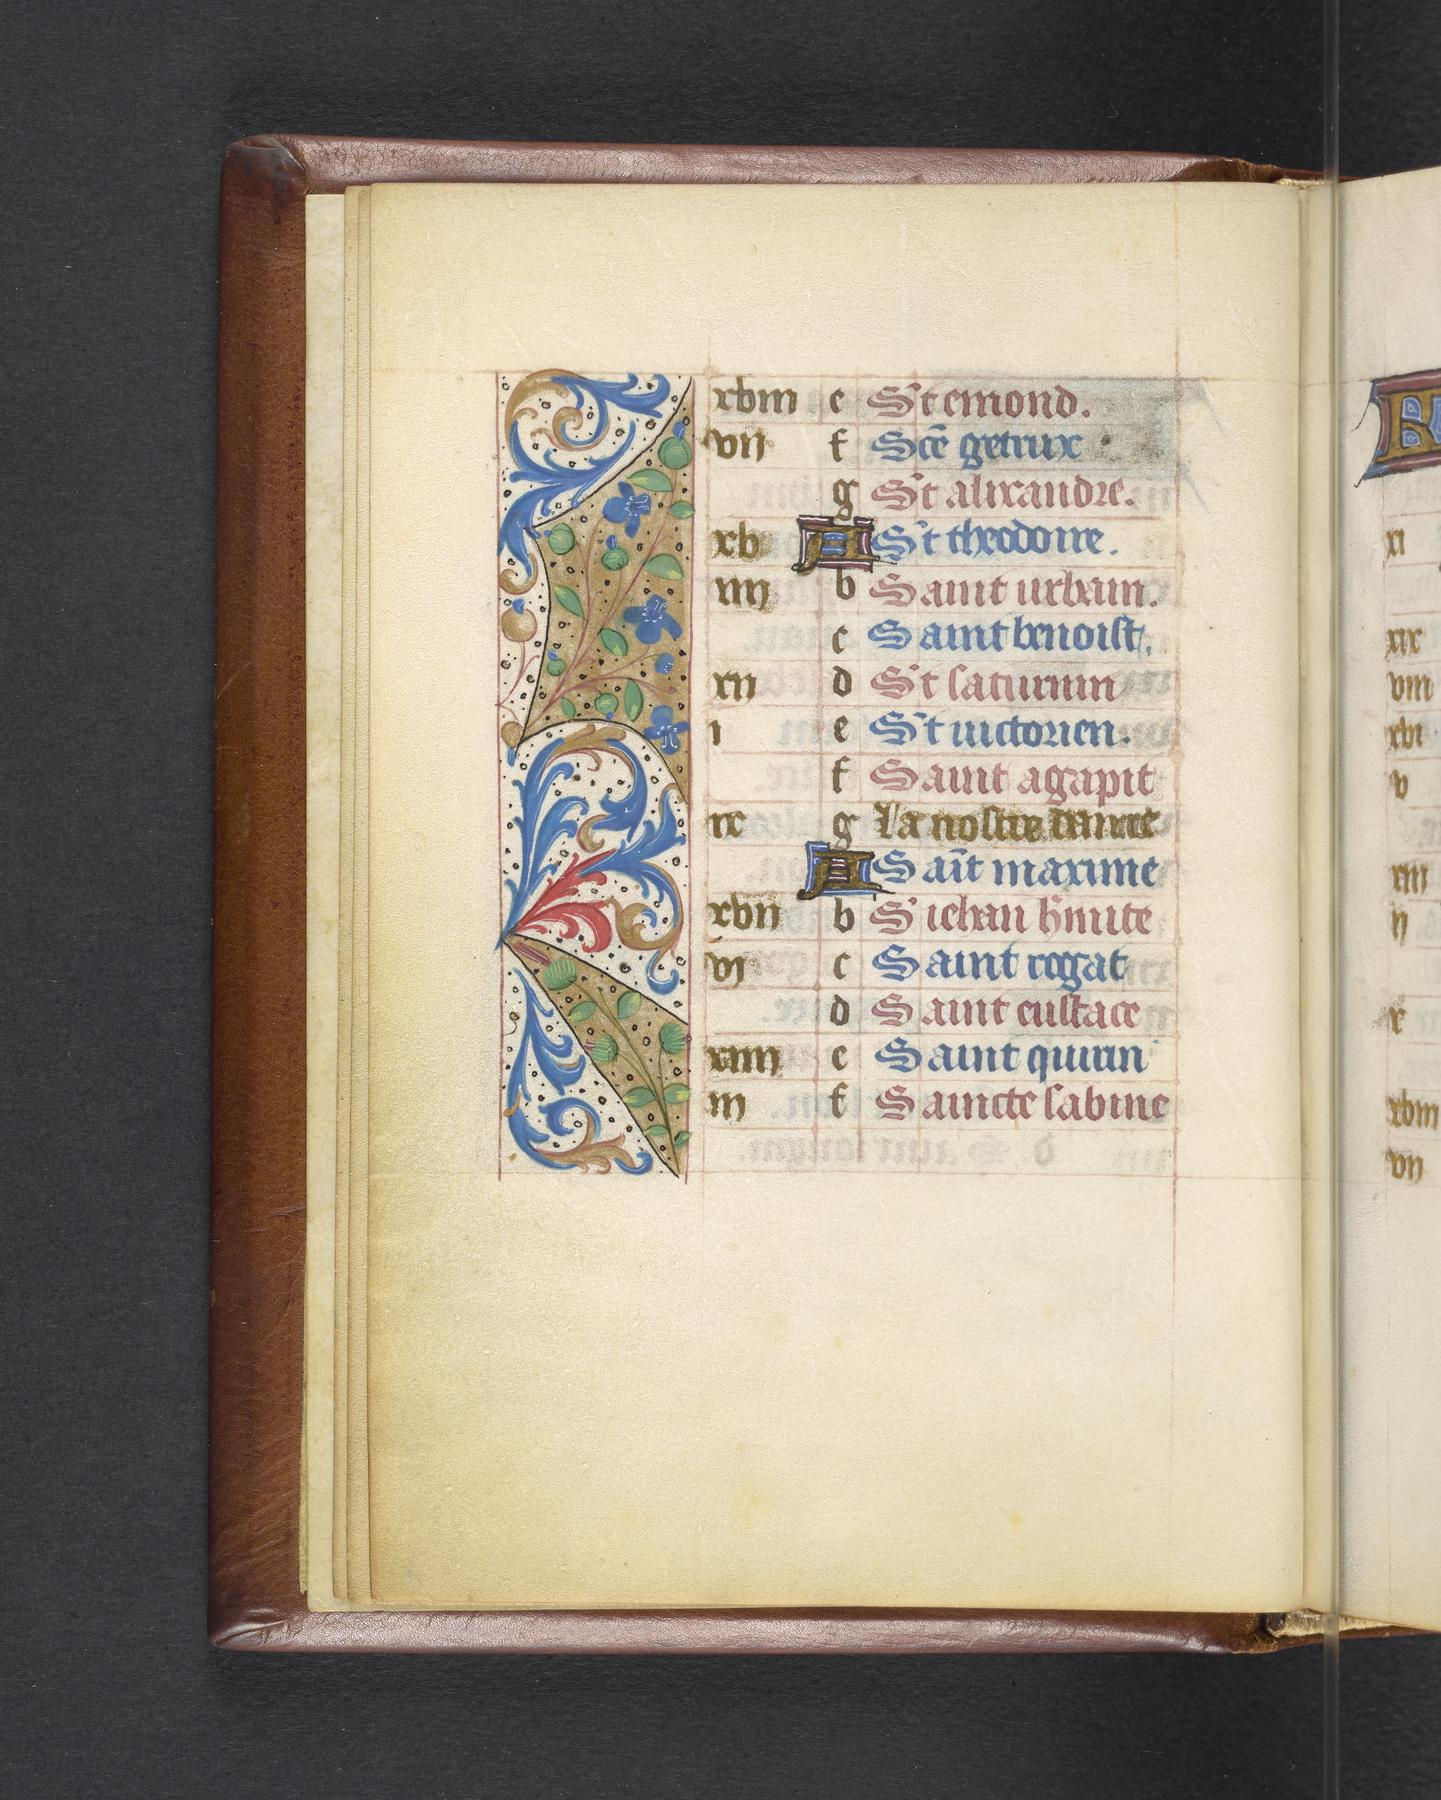 xviii e St emond.
vii f Sce getrux
g St alixandre.
xv A St theodoire.
iiii b Saint urbain.
c Saint benoist.
xii d St saturnin
i e St victorien.
f Saint agapit
ix g La nostre dame
A Sait maxime
xvii b S iehan h'mite
vi c Saint rogat
d Saint eustace
xiiii e Saint quirin
iii f Saincte sabine
xi
xix
viii
xvi
v
xiii
ii
x
xviii
vii